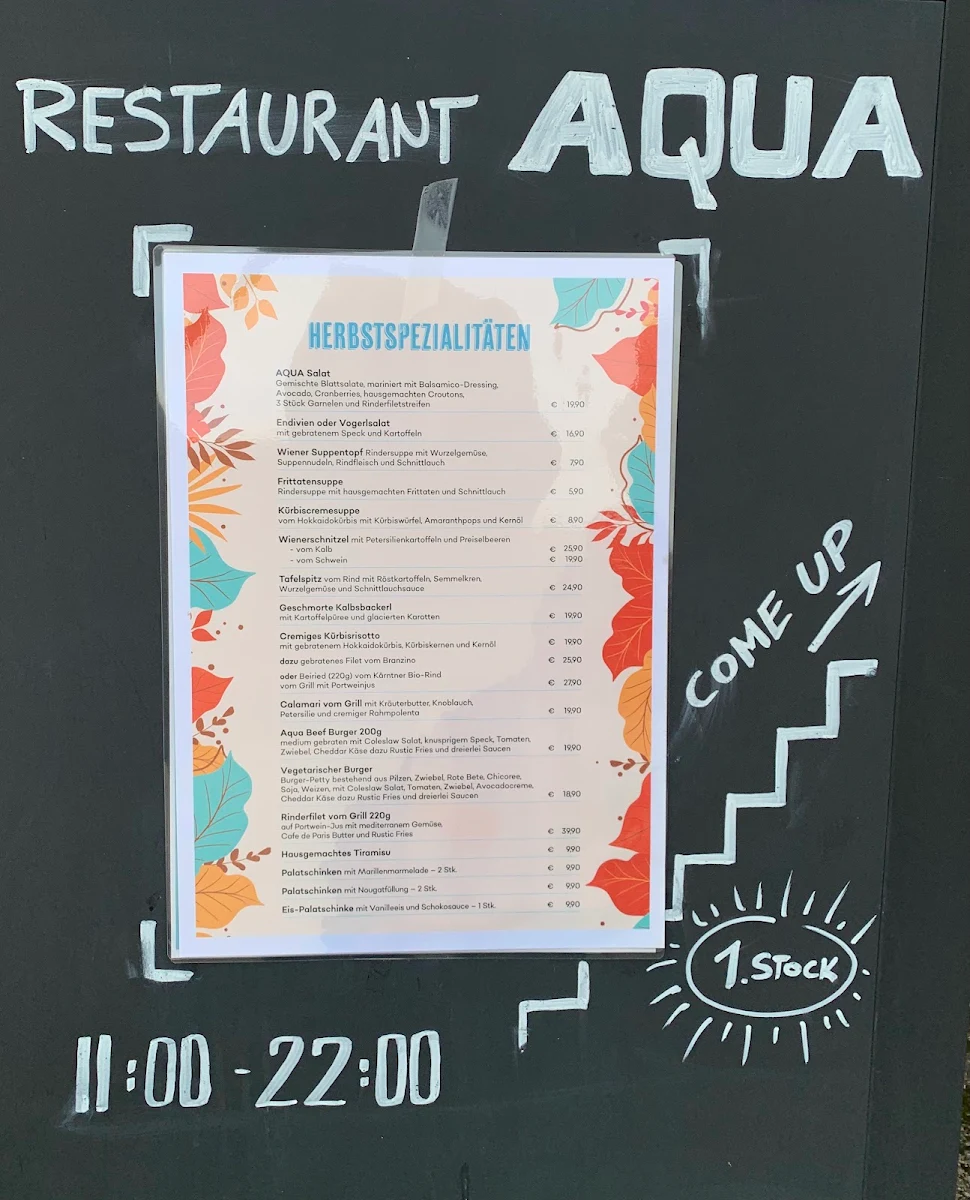 RESTAURANT AQUA
HERBSTSPEZIALITÄTEN
AQUA Salat
Gemischte Blattsalate, mariniert mit Balsamico-Dressing,
Avocado, Cranberries, hausgemachten Croutons,
3 Stück Garnelen und Rinderfiletstreifen € 19,90
Endivien oder Vogerlsalat
mit gebratenem Speck und Kartoffeln € 16,90
Wiener Suppentopf Rindersuppe mit Wurzelgemüse,
Suppennudeln, Rindfleisch und Schnittlauch € 7,90
Frittatensuppe
Rindersuppe mit hausgemachten Frittaten und Schnittlauch € 5,90
Kürbiscremesuppe
vom Hokkaidokürbis mit Kürbiswürfel, Amaranthpops und Kernöl € 8,90
Wienerschnitzel mit Petersilienkartoffeln und Preiselbeeren
- vom Kalb € 25,90
- vom Schwein € 19,90
Tafelspitz vom Rind mit Röstkartoffeln, Semmelkren,
Wurzelgemüse und Schnittlauchsauce € 24,90
Geschmorte Kalbsbackerl
mit Kartoffelpüree und glacierten Karotten € 19,90
Cremiges Kürbisrisotto € 19,90
mit gebratenem Hokkaidokürbis, Kürbiskernen und Kernöl
dazu gebratenes Filet vom Branzino € 25,90
oder Beiried (220g) vom Kärntner Bio-Rind
vom Grill mit Portweinjus € 27,90
Calamari vom Grill mit Kräuterbutter, Knoblauch,
Petersilie und cremiger Rahmpolenta € 19,90
Aqua Beef Burger 200g
medium gebraten mit Coleslaw Salat, knusprigem Speck, Tomaten,
Zwiebel, Cheddar Käse dazu Rustic Fries und dreierlei Saucen € 19,90
Vegetarischer Burger
Burger-Petty bestehend aus Pilzen, Zwiebel, Rote Bete, Chicoree,
Soja, Weizen, mit Coleslaw Salat, Tomaten, Zwiebel, Avocadocreme,
Cheddar Käse dazu Rustic Fries und dreierlei Saucen € 18,90
Rinderfilet vom Grill 220g
auf Portwein-Jus mit mediterranem Gemüse,
Cafe de Paris Butter und Rustic Fries € 39,90
Hausgemachtes Tiramisu € 9,90
Palatschinken mit Marillenmarmelade – 2 Stk. € 9,90
Palatschinken mit Nougatfüllung – 2 Stk. € 9,90
Eis-Palatschinke mit Vanilleeis und Schokosauce – 1 Stk. € 9,90
COME UP
1. STOCK
11:00 - 22:00